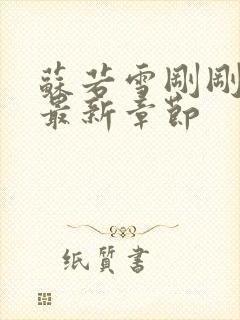 蘇若雪剛剛
最新章節
纸質書